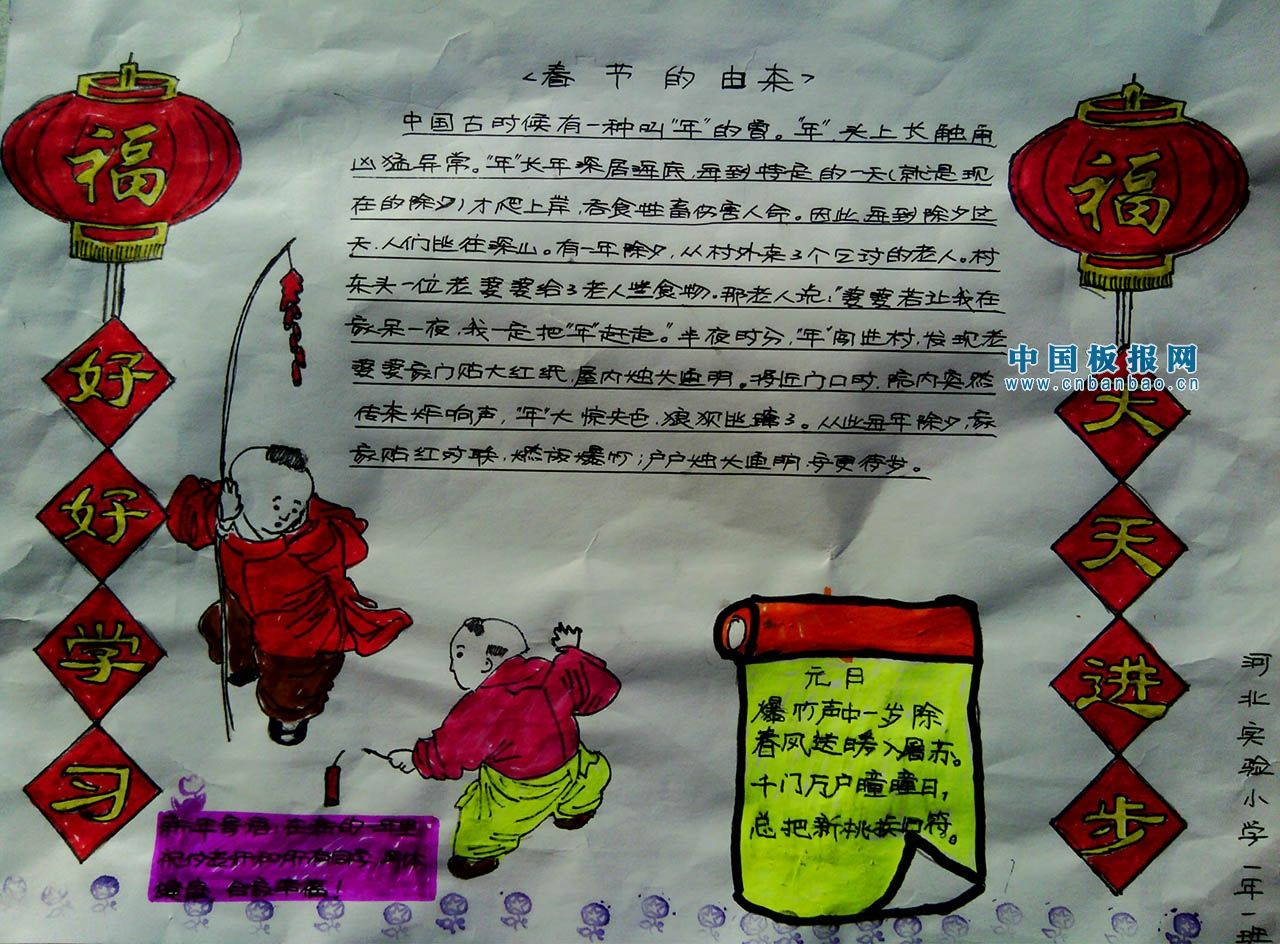 <春节的由来>
中国古时候有一种叫"年"的兽。"年"头上长触角
凶猛异常。"年"长年深居海底,每到特定的一天(就是现
在的除夕)才爬上岸,吞食牲畜伤害人命。因此每到除夕这
天,人们逃往深山。有一年除夕,从村外来了个乞讨的老人。村
东头一位老婆婆给了老人些食物。那老人说:"婆婆若让我在
家呆一夜,我一定把"年"赶走。"半夜时分,"年"闯进村,发现老
婆婆家门贴大红纸,屋内烛火通明。将近门口时,院内突然
传来炸响声,"年"大惊失色,狼狈逃窜了。从此每年除夕,家
家贴红对联,燃放爆竹;户户烛火通明,守更待岁。
福
好
好
学
习
福
天
天
进
步
中国板报网
www.cnbanbao.cn
元日
爆竹声中一岁除
春风送暖入屠苏。
千门万户瞳瞳日,
总把新桃换旧符。
新年寄语:在新的一年里
祝付老师和所有同学,身体
健康 合家幸福!
河北实验小学二年一班